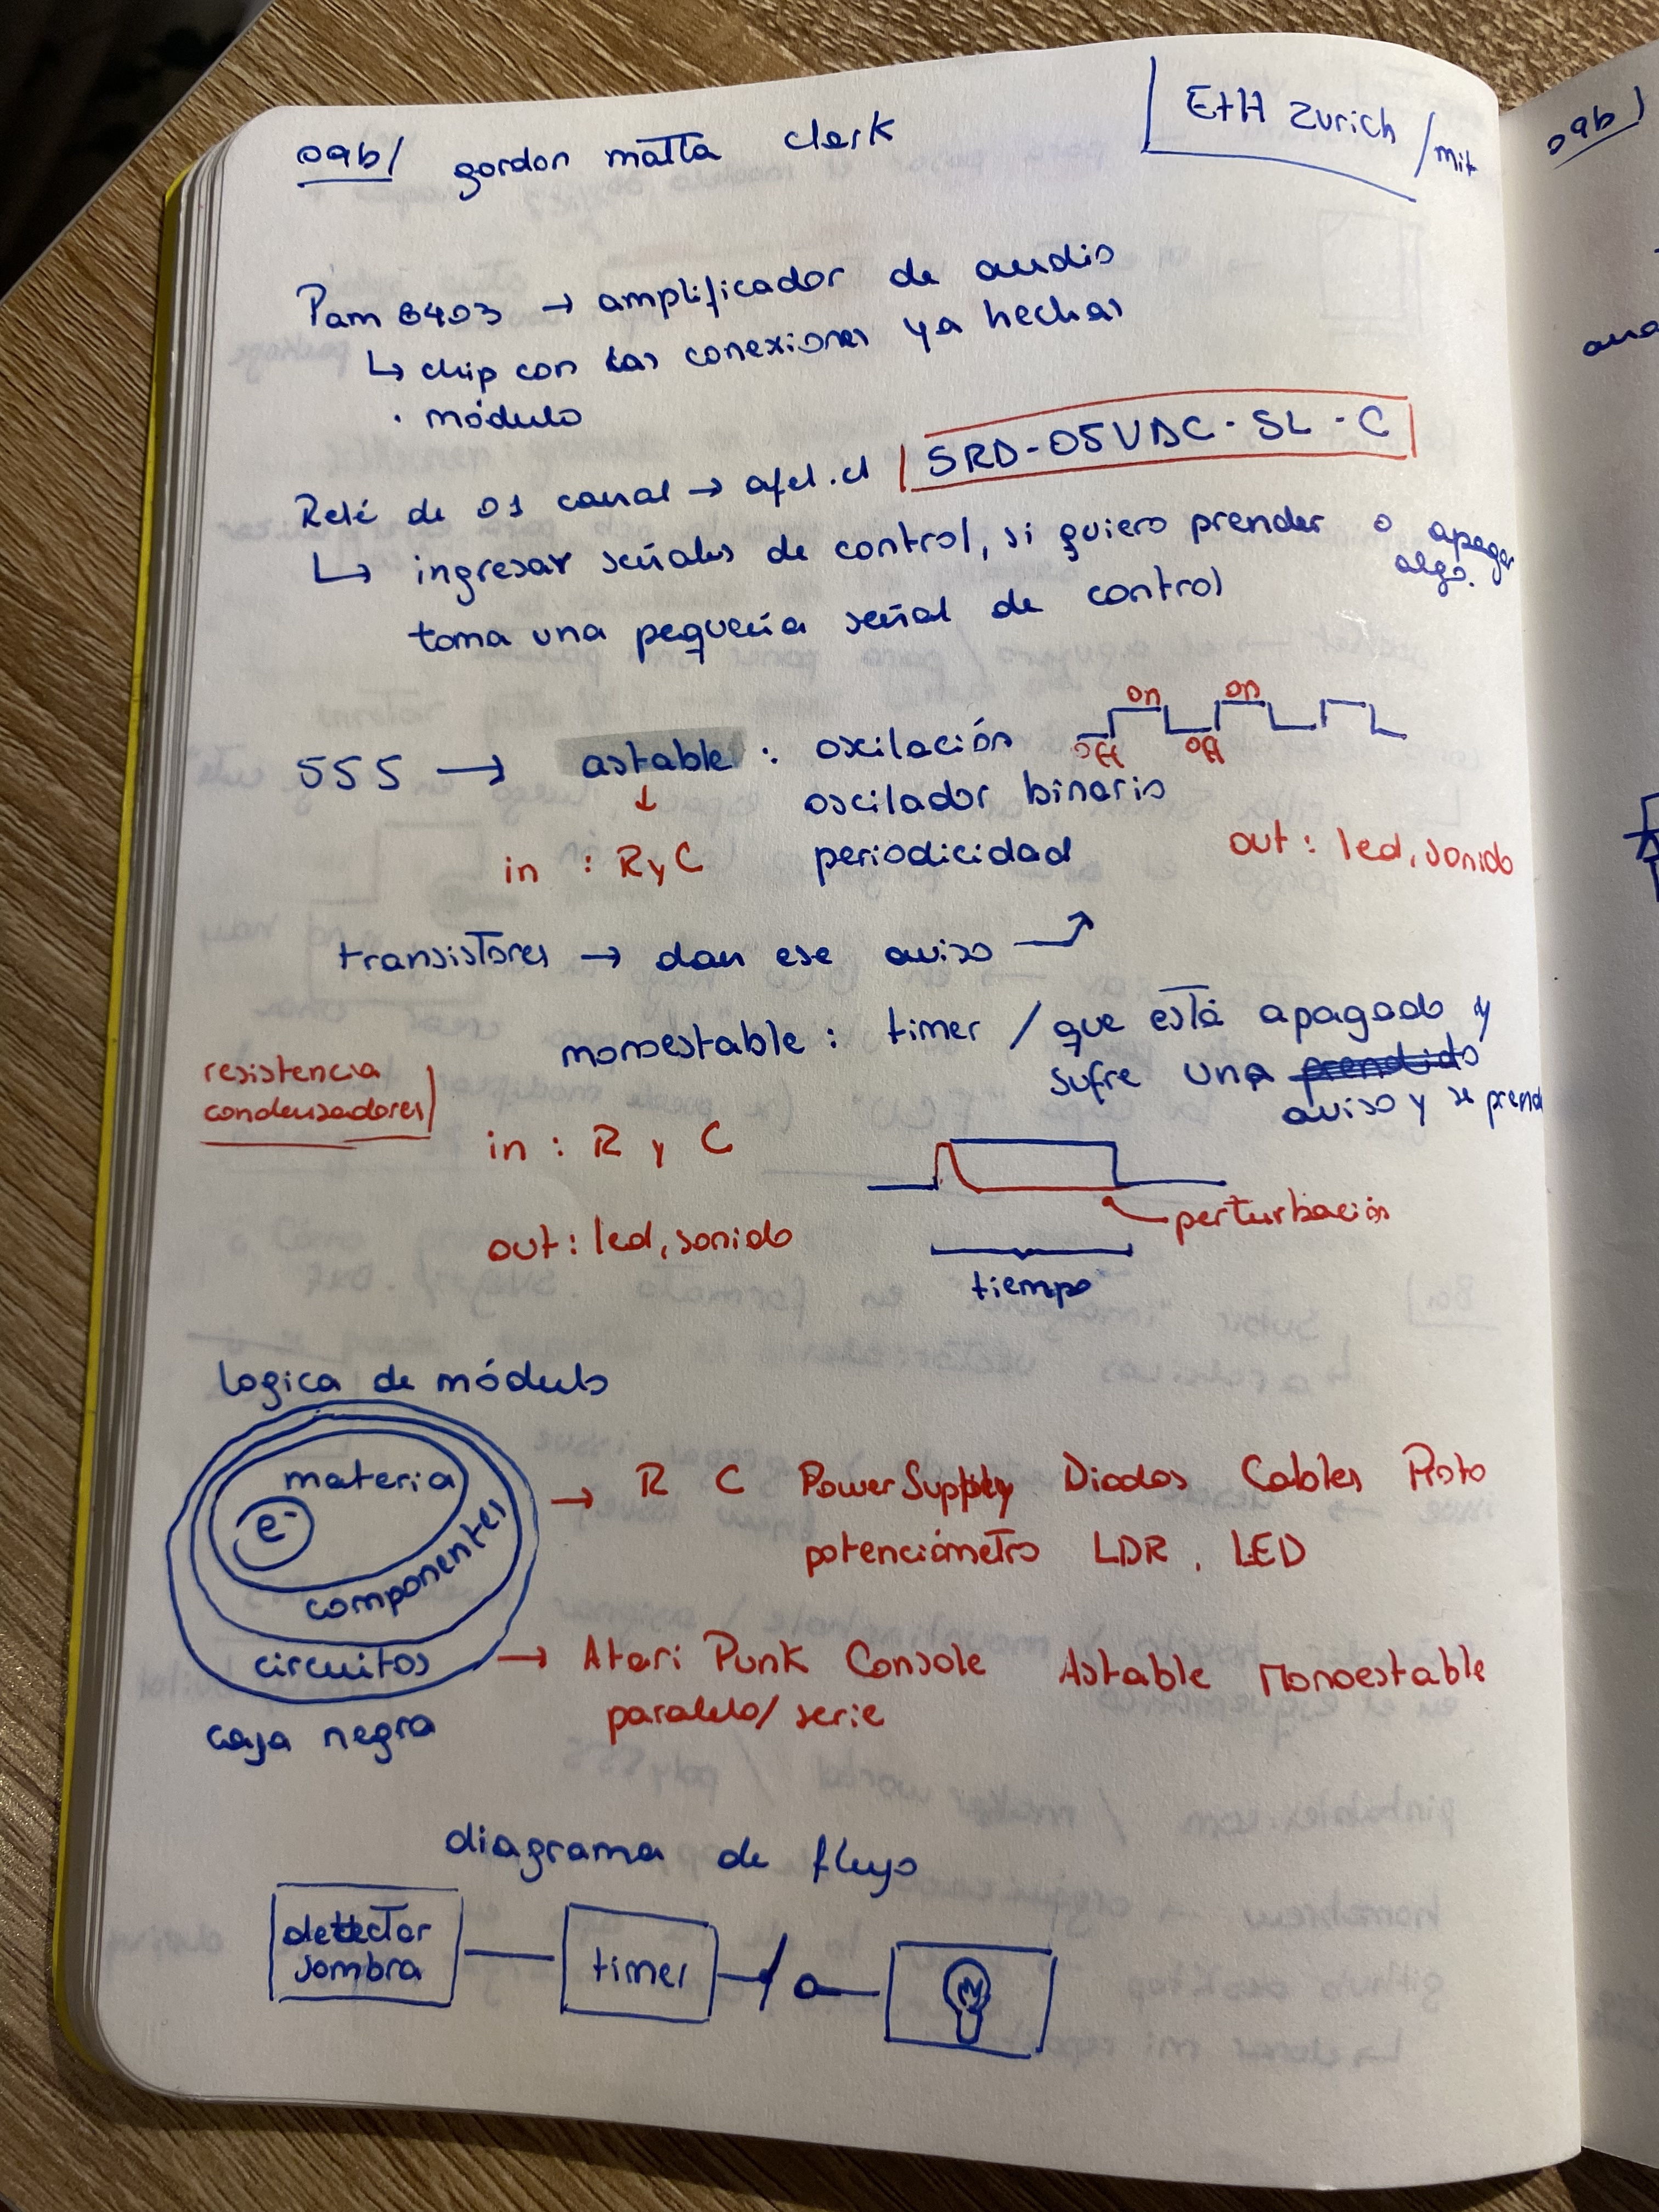 09b/ gordon matta clark
ETH Zurich /mit
Pam 8403 → amplificador de audio
↳ chip con las conexiones ya hechas
· módulo
Relé de 01 canal → afel.el SRD-05VDC-SL-C
↳ ingresar señales de control, si quiero prender o apagar
algo.
toma una pequeña señal de control
555 → astable : oxilación
on on
off off
↓ oscilador binario
in : R y C periodicidad out : led, sonido
transistores → dan ese aviso
monoestable : timer / que está apagado y
sufre una prendido
aviso y se prend
resistencia
condensadores
in : R y C
perturbación
out : led, sonido
tiempo
logica de módulo
materia
e-
componentes → R C Power Supply Diodos Cables Proto
potenciómetro LDR, LED
circuitos → Atari Punk Console Astable Monoestable
paralelo/ serie
caja negra
diagrama de flujo
detector
sombra
timer
09b/